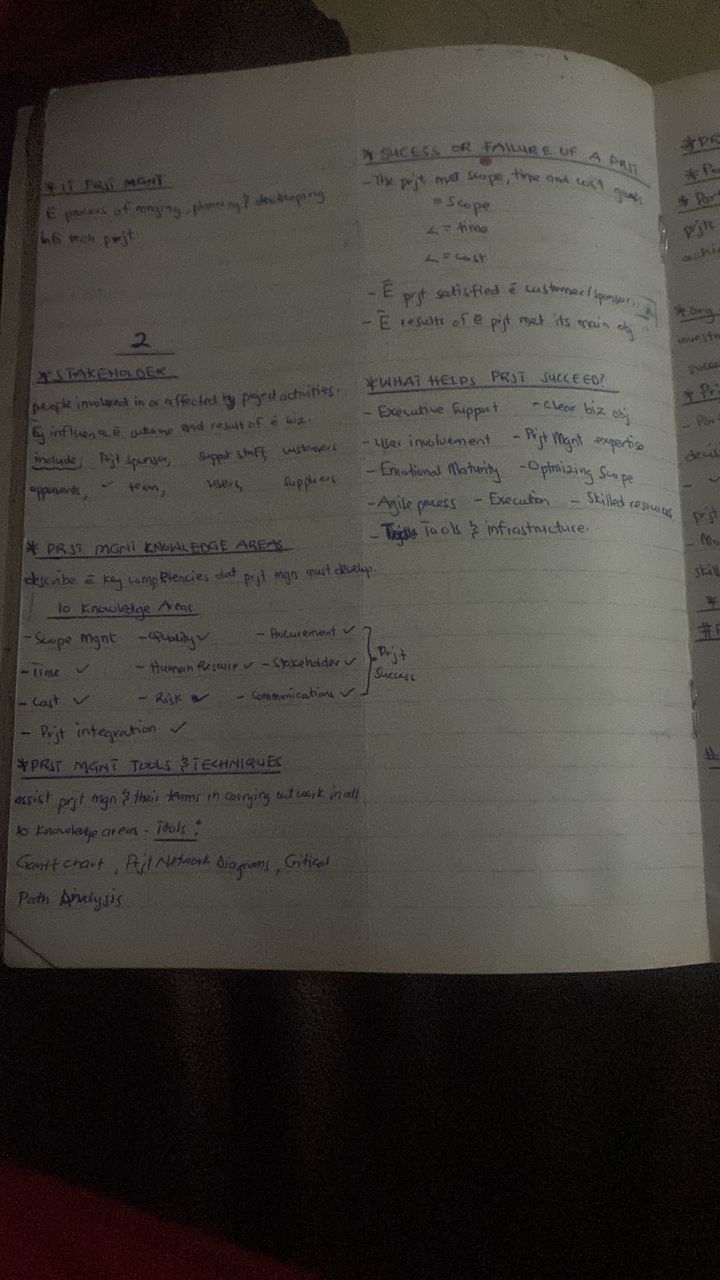 *IT PRJT MGNT
Ē process of mnging, planning & developing
info tech prjt
2
*STAKEHOLDER
people involved in or affected by project activities.
Ēy influence ē outcome and result of ē biz.
include; Prjt sponsor, support staff, customers
opponents, ✓ team, users, suppliers
* PRJT MGNT KNOWLEDGE AREAS
describe ē key competencies dat prjt mgn must develop.
10 Knowledge Areas
- Scope Mgnt - Quality ✓ - Procurement ✓
- Time ✓ - Human Resource ✓ - Stakeholder ✓
- Cost ✓ - Risk ✓ - Communications ✓
Prjt
Success
- Prjt integration ✓
*PRJT MGNT TOOLS & TECHNIQUES
assist prjt mgn & their terms in carrying out work in all
10 knowledge areas. Tools:
Gantt chart, Prjt Network Diagrams, Critical
Path Analysis
* SUCESS OR FAILURE OF A PRJT
- The prjt met scope, time and cost goals
= Scope
= time
= cost
- Ē prjt satisfied ē customer/sponsor
- Ē results of ē prjt met its main obj
*WHAT HELPS PRJT SUCCEED?
- Executive Support - Clear biz obj
- User involvement - Prjt Mgnt expertise
- Emotional Maturity - Optmizing Scope
- Agile process - Execution - Skilled resources
- Tools & Infrastructure